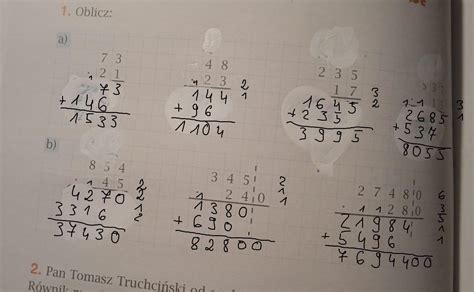 1. Oblicz:
a)
73
21
73
+146
1533
48
23 2
144 1
+96
1104
235
17 3
1645 2
+235
3995
3
2685
+537
8055
b)
854
45
4270
3316
37430
345
240
1380
+690
82800
27480 6
280 3
21984 5
+5496 1
7694400
2. Pan Tomasz Truchciński od